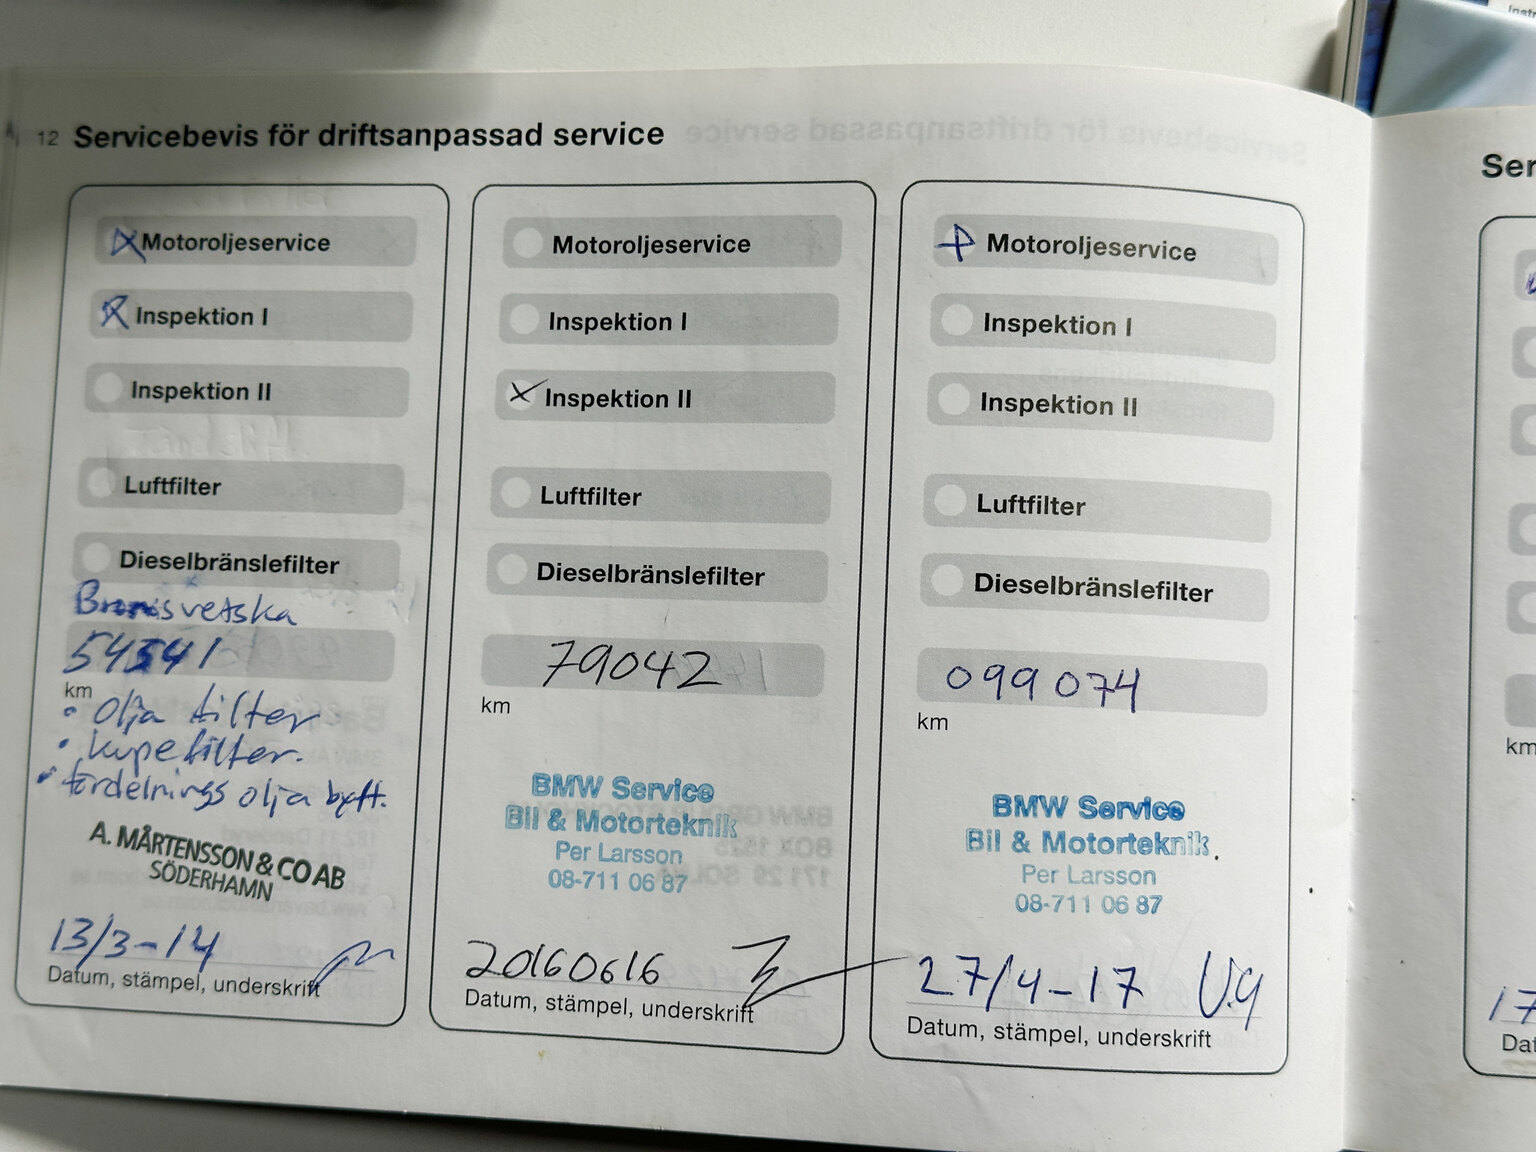 12 Servicebevis för driftsanpassad service
Motoroljeservice
Inspektion I
Inspektion II
Luftfilter
Dieselbränslefilter
Bromsvetska
54541
km
• Olja filter
• kupefilter.
• fördelnings olja bytt.
A. MÅRTENSSON & CO AB
SÖDERHAMN
13/3-14
Datum, stämpel, underskrift
Motoroljeservice
Inspektion I
Inspektion II
Luftfilter
Dieselbränslefilter
79042
km
BMW Service
Bil & Motorteknik
Per Larsson
08-711 06 87
20160616
Datum, stämpel, underskrift
Motoroljeservice
Inspektion I
Inspektion II
Luftfilter
Dieselbränslefilter
099074
km
BMW Service
Bil & Motorteknik
Per Larsson
08-711 06 87
27/4-17
Datum, stämpel, underskrift
Ser
km
17
Dat